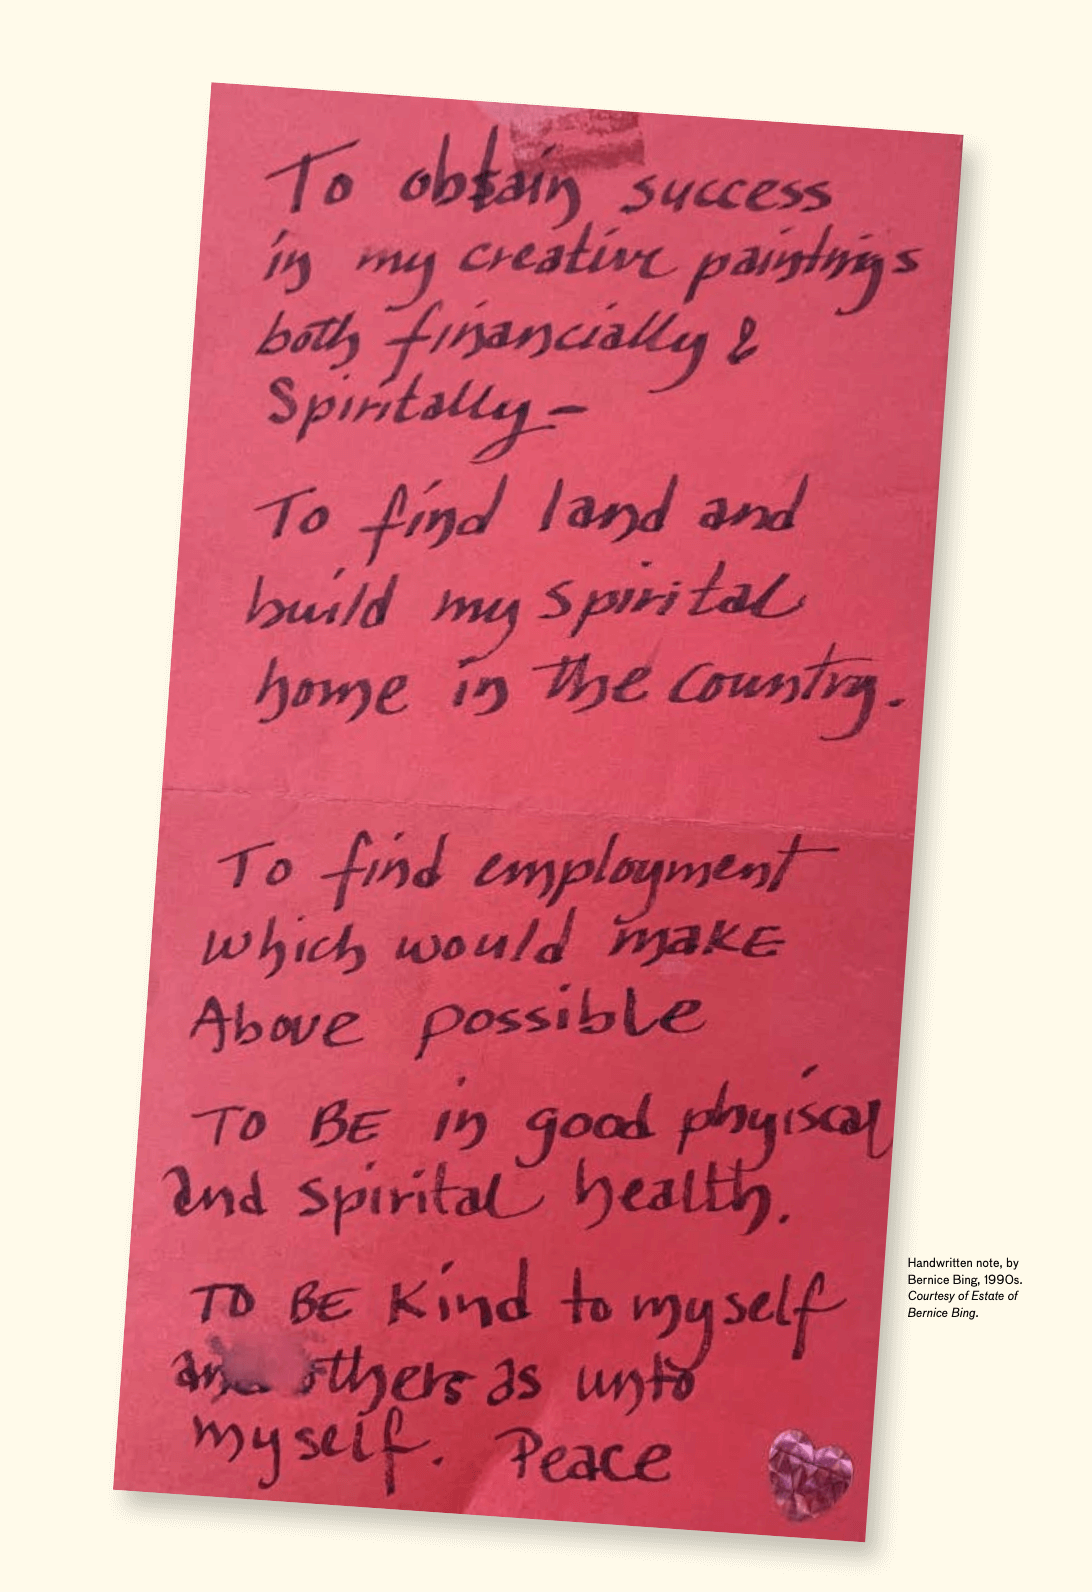 To obtain success
in my creative paintings
both financially &
Spiritally –
To find land and
build my spirital
home in the country.
To find employment
which would make
Above possible
TO BE in good phyiscal
and spirital health.
TO BE Kind to myself
and others as unto
myself. Peace
Handwritten note, by
Bernice Bing, 1990s.
Courtesy of Estate of
Bernice Bing.